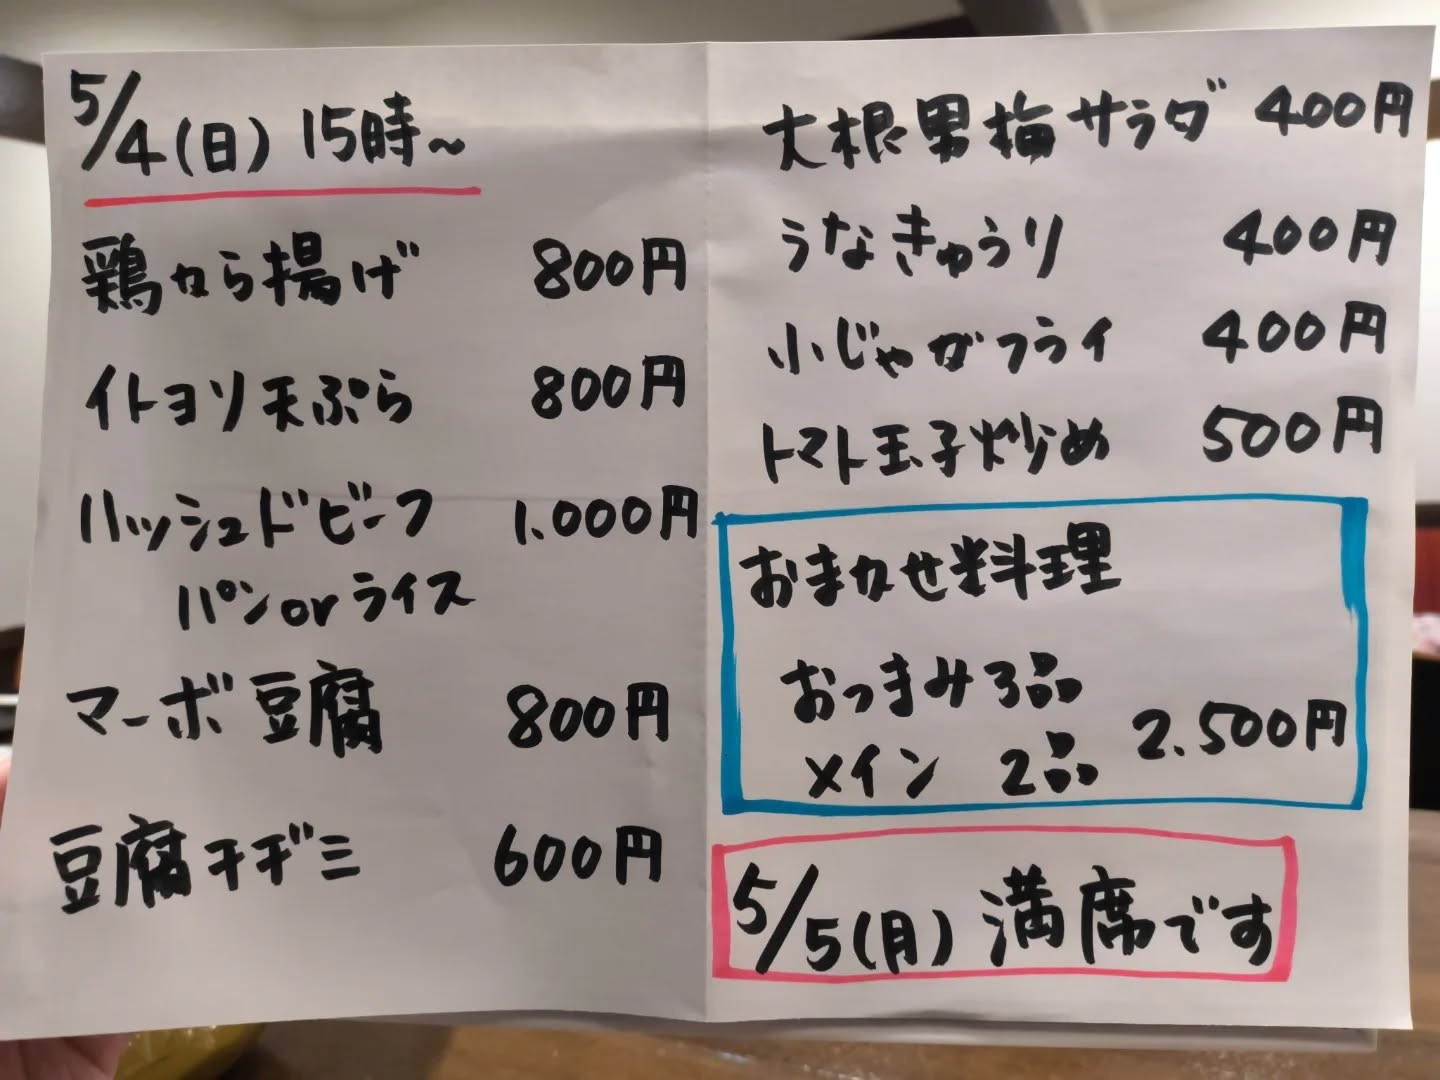 5/4(日) 15時~
鶏から揚げ 800円
イトヨリ天ぷら 800円
ハッシュドビーフ 1.000円
パンorライス
マーボ豆腐 800円
豆腐チヂミ 600円
大根男梅サラダ 400円
うなきゅうり 400円
小じゃがフライ 400円
トマト玉子炒め 500円
おまかせ料理
おつまみ3品
メイン 2品 2.500円
5/5(月) 満席です